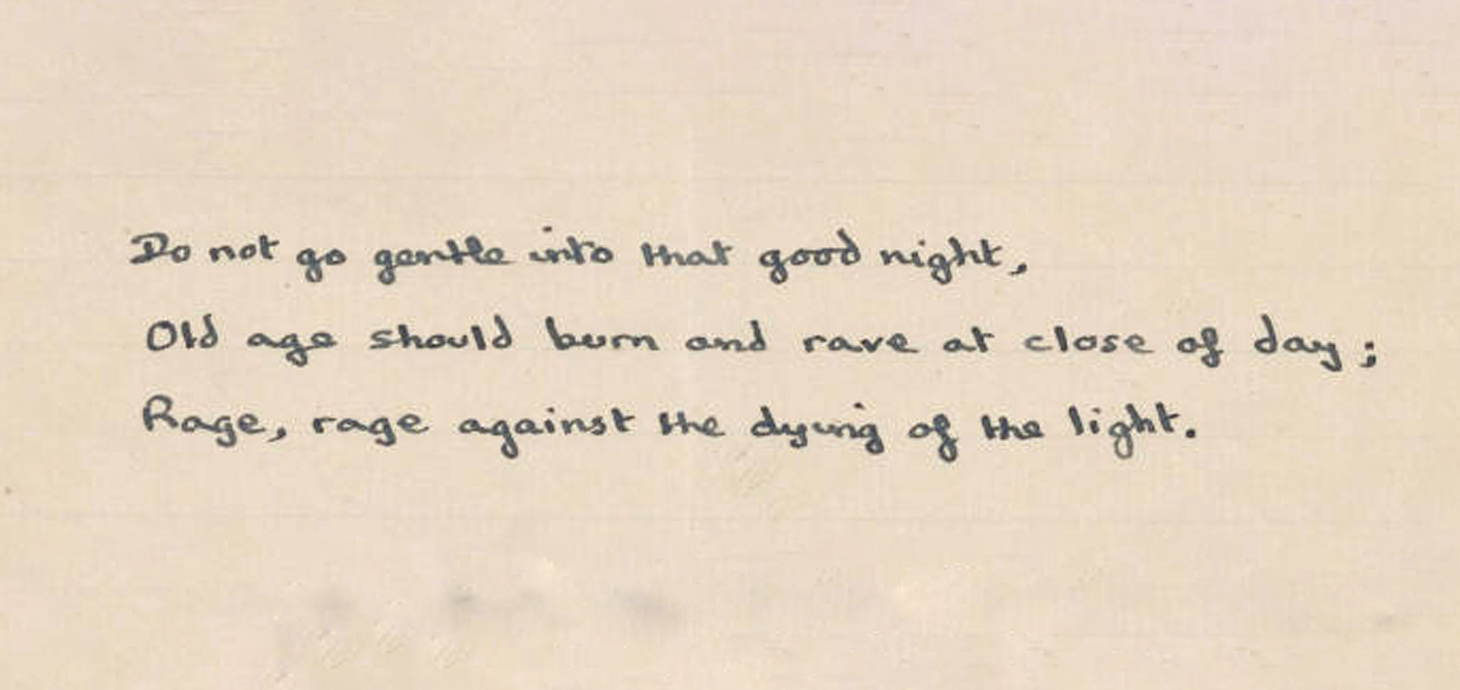 Do not go gentle into that good night,
Old age should burn and rave at close of day;
Rage, rage against the dying of the light.